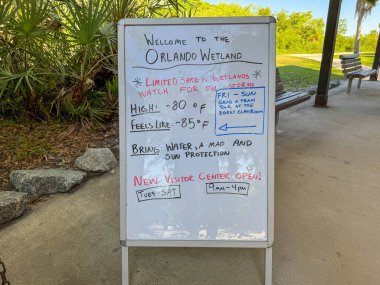 Welcome to the
Orlando Wetland
* Limited shade n' wetlands *
Watch for PM storms
High: ~80 °F
Feels like: ~85 °F
Fri - Sun
Tram
Tour at the
Bring: Water, a map and
sun protection
New Visitor Center open!
Tues-Sat
9am-4pm